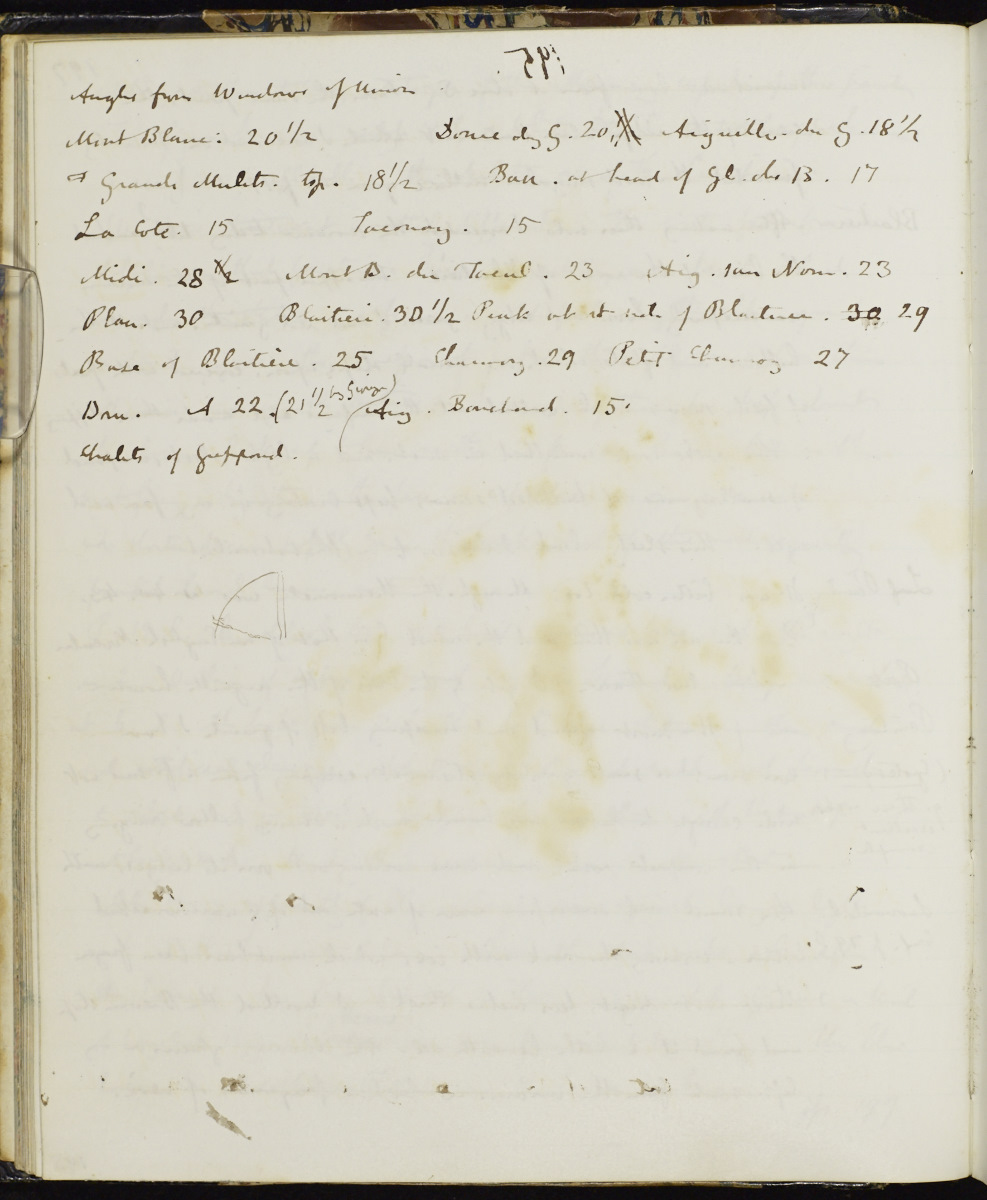 195
Angles from Windows of Union
Mont Blanc. 20 1/2 Dome du G. 20, Aiguille. du G. 18 1/2
Grands Mulets. top. 18 1/2 Base. at head of Gl. des B. 17
La Cote. 15 Taconay. 15
Midi. 28 1/2 Mont B. du Tacul. 23 Aig. sans Nom. 23
Plan. 30 Blaitiere. 30 1/2 Peak at st side of Blaitiere. 30 29
Base of Blaitière. 25 Charmoz. 29 Petit Charmoz 27
Dru. A 22. (21 1/2 by George) Aig. Bouchard. 15.
Chalets of